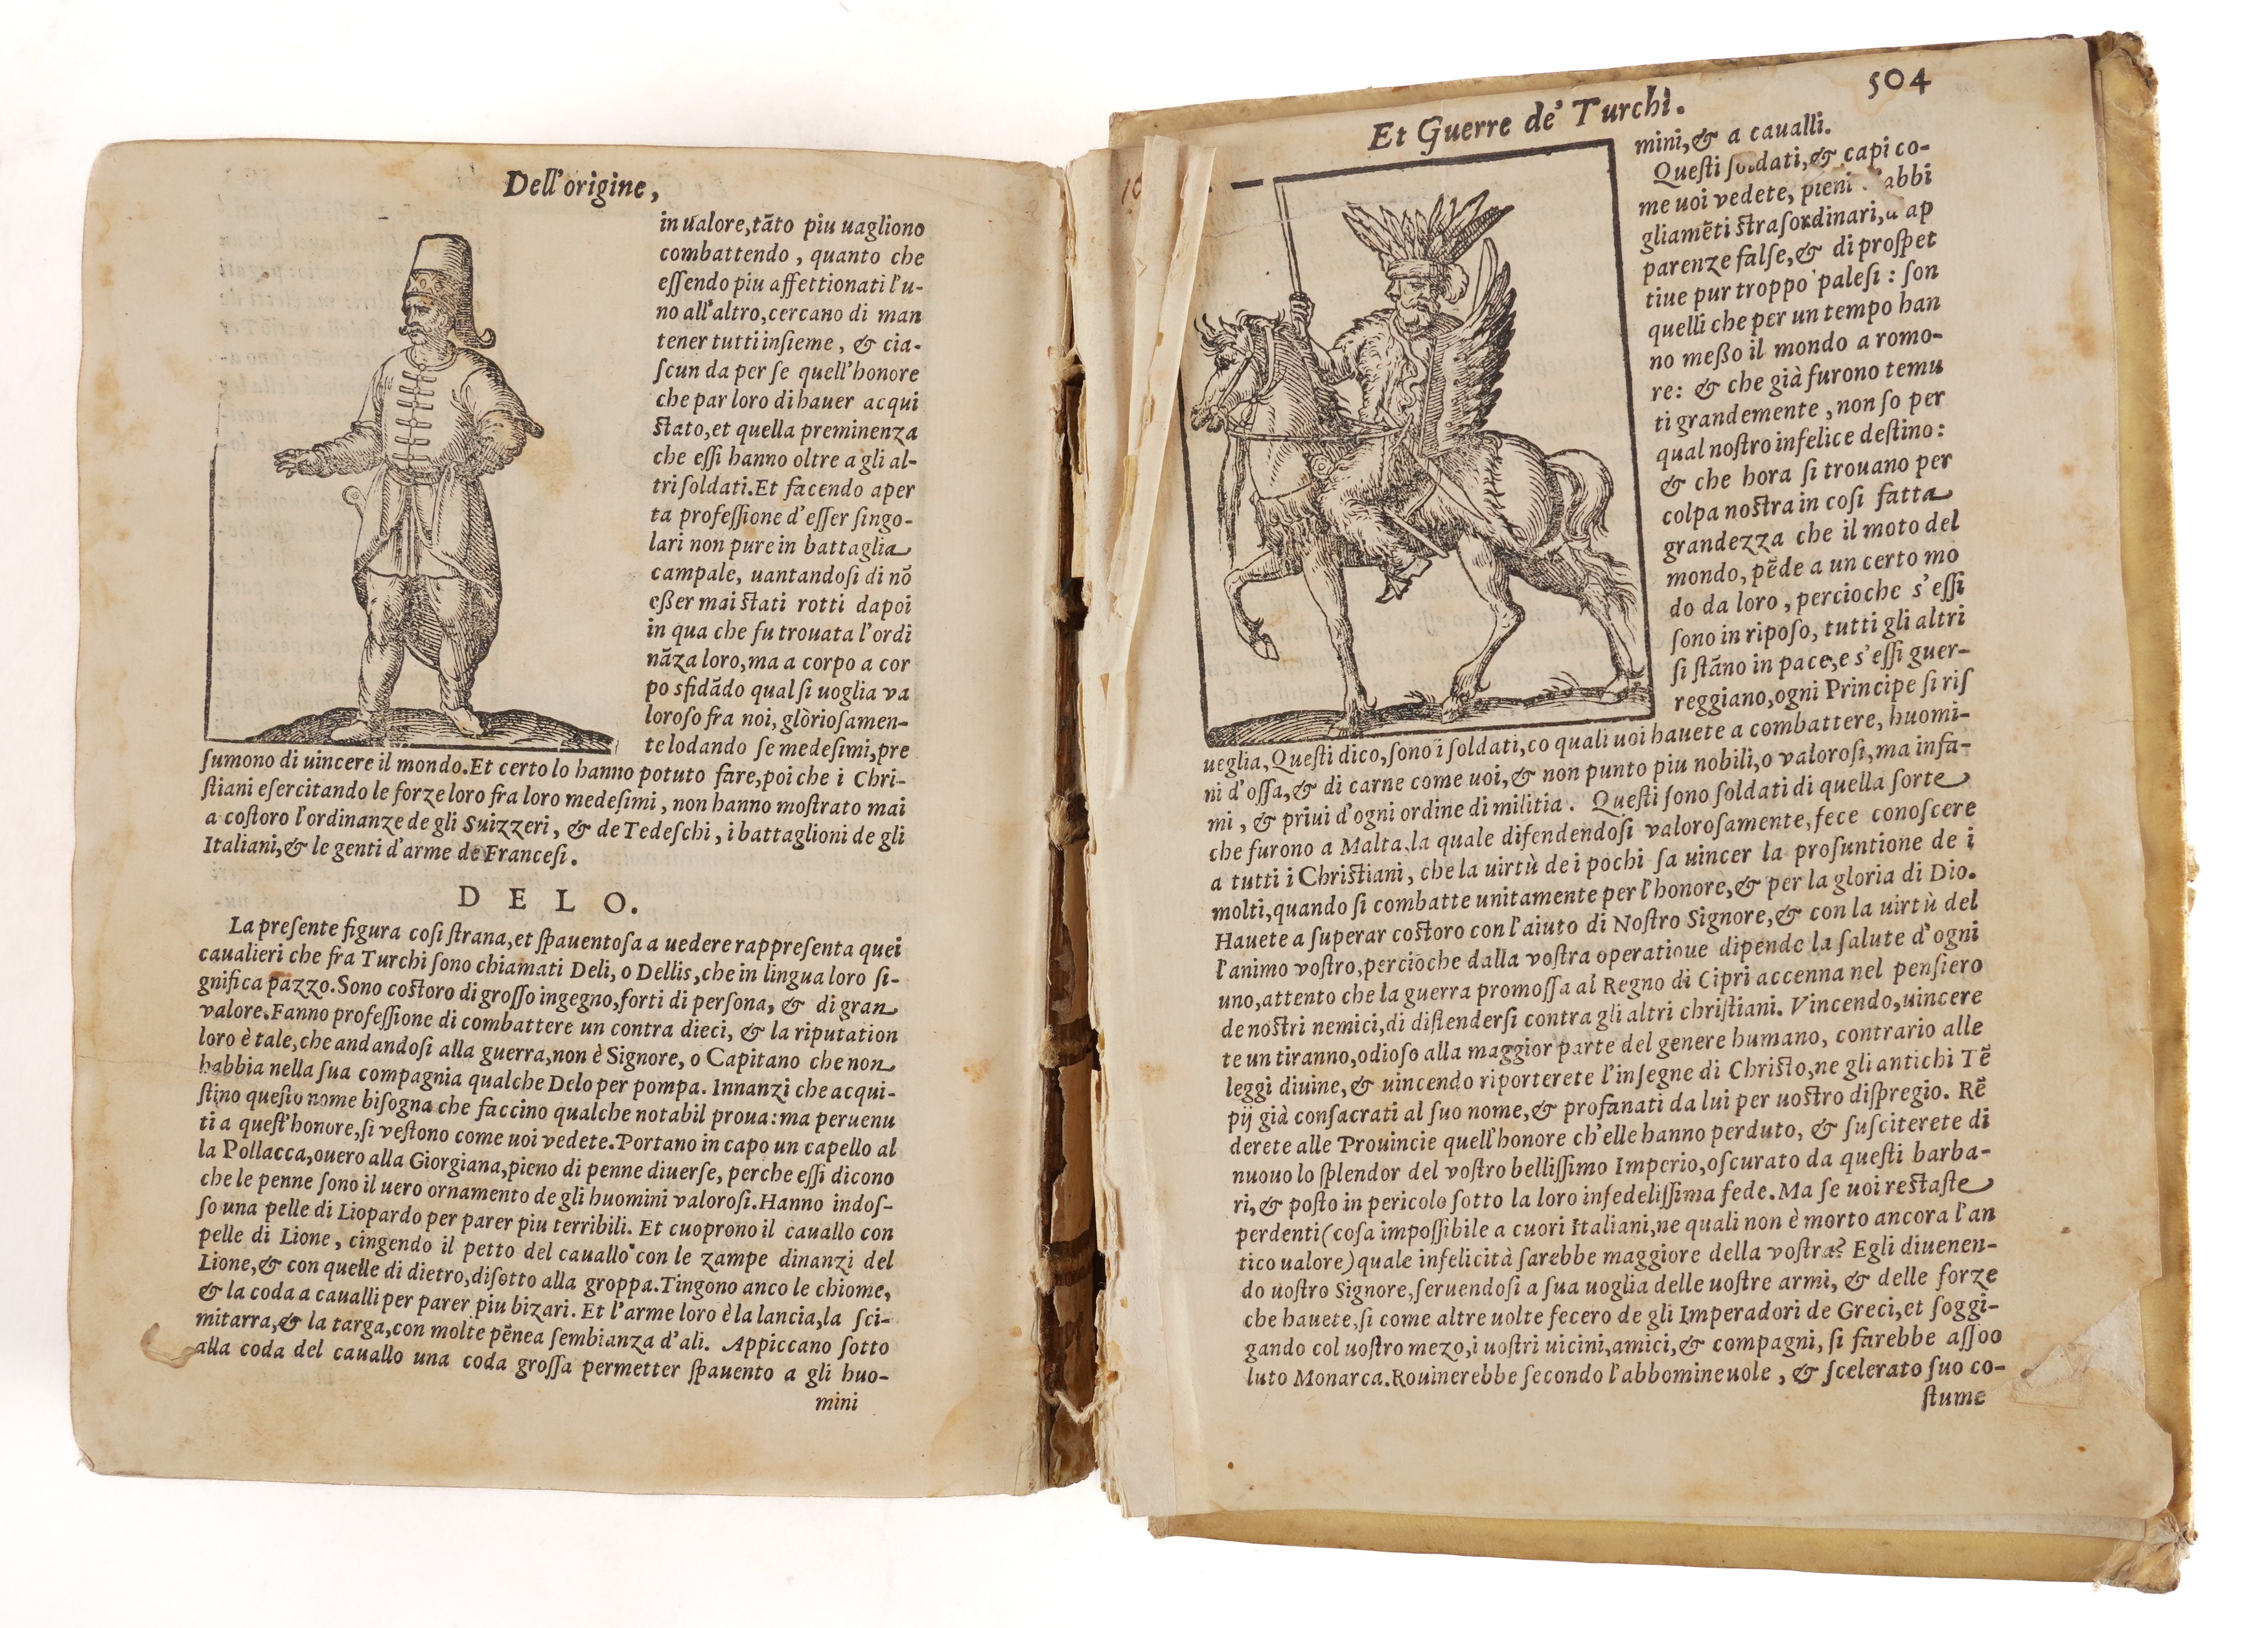 Dell'origine,
in ualore,tãto piu uagliono
combattendo, quanto che
eſſendo piu affettionati l'u-
no all'altro,cercano di man
tener tutti inſieme, & cia-
ſcun da per ſe quell'honore
che par loro di hauer acqui
ſtato,et quella preminenza
che eſſi hanno oltre a gli al-
tri ſoldati.Et facendo aper
ta profeſſione d'eſſer ſingo-
lari non pure in battaglia
campale, uantandoſi di nõ
eßer mai ſtati rotti dapoi
in qua che fu trouata l'ordi
nãza loro,ma a corpo a cor
po sfidãdo qual ſi uoglia va
loroſo fra noi, glòrioſamen-
te lodando ſe medeſimi,pre
ſumono di uincere il mondo.Et certo lo hanno potuto fare,poi che i Chri-
ſtiani eſercitando le forze loro fra loro medeſimi, non hanno moſtrato mai
a coſtoro l'ordinanze de gli Suizzeri, & de Tedeſchi, i battaglioni de gli
Italiani,& le genti d'arme de Franceſi.
DELO.
La preſente figura coſi ſtrana,et ſpauentoſa a uedere rappreſenta quei
caualieri che fra Turchi ſono chiamati Deli, o Dellis,che in lingua loro ſi-
gnifica pazzo.Sono coſtoro di groſſo ingegno,forti di perſona, & di gran
valore.Fanno profeſſione di combattere un contra dieci, & la riputation
loro è tale,che andandoſi alla guerra,non è Signore, o Capitano che non
habbia nella ſua compagnia qualche Delo per pompa. Innanzi che acqui-
ſtino queſto nome biſogna che faccino qualche notabil proua:ma peruenu
ti a queſt'honore,ſi veſtono come uoi vedete.Portano in capo un capello al
la Pollacca,ouero alla Giorgiana,pieno di penne diuerſe, perche eſſi dicono
che le penne ſono il uero ornamento de gli huomini valoroſi.Hanno indoſ-
ſo una pelle di Liopardo per parer piu terribili. Et cuoprono il cauallo con
pelle di Lione, cingendo il petto del cauallo con le zampe dinanzi del
Lione,& con quelle di dietro,diſotto alla groppa.Tingono anco le chiome,
& la coda a caualli per parer piu bizari. Et l'arme loro è la lancia,la ſci-
mitarra,& la targa,con molte pẽne a ſembianza d'ali. Appiccano ſotto
alla coda del cauallo una coda groſſa permetter ſpauento a gli huo-
mini
Et Guerre de' Turchi.
504
mini,& a caualli.
Queſti ſoldati,& capi co-
me uoi vedete, pieni abbi
gliamẽti ſtraſordinari, ap
parenze falſe,& di proſpet
tiue pur troppo paleſi: ſon
quelli che per un tempo han
no meßo il mondo a romo-
re: & che già furono temu
ti grandemente, non ſo per
qual noſtro infelice deſtino:
& che hora ſi trouano per
colpa noſtra in coſi fatta
grandezza che il moto del
mondo, pẽde a un certo mo
do da loro, percioche s'eſſi
ſono in ripoſo, tutti gli altri
ſi ſtãno in pace,e s'eſſi guer-
reggiano,ogni Principe ſi riſ
ueglia,Queſti dico,ſono i ſoldati,co quali uoi hauete a combattere, huomi-
ni d'oſſa,& di carne come uoi,& non punto piu nobili,o valoroſi,ma infa-
mi, & priui d'ogni ordine di militia. Queſti ſono ſoldati di quella ſorte
che furono a Malta,la quale difendendoſi valoroſamente,fece conoſcere
a tutti i Chriſtiani, che la uirtù de i pochi ſa uincer la proſuntione de i
molti,quando ſi combatte unitamente per l'honore,& per la gloria di Dio.
Hauete a ſuperar coſtoro con l'aiuto di Noſtro Signore,& con la uirtù del
l'animo voſtro,percioche dalla voſtra operatione dipende la ſalute d'ogni
uno,attento che la guerra promoſſa al Regno di Cipri accenna nel penſiero
de noſtri nemici,di diſtenderſi contra gli altri chriſtiani. Vincendo,uincere
te un tiranno,odioſo alla maggior parte del genere humano, contrario alle
leggi diuine,& uincendo riporterete l'inſegne di Chriſto,ne gli antichi Tẽ
pij già conſacrati al ſuo nome,& profanati da lui per uoſtro diſpregio. Rẽ
derete alle Prouincie quell'honore ch'elle hanno perduto, & ſuſciterete di
nuouo lo ſplendor del voſtro belliſſimo Imperio,oſcurato da queſti barba-
ri,& poſto in pericolo ſotto la loro infedeliſſima fede.Ma ſe uoi reſtaſte
perdenti(coſa impoſſibile a cuori Italiani,ne quali non è morto ancora l'an
tico ualore)quale infelicità ſarebbe maggiore della voſtra? Egli diuenen-
do uoſtro Signore,ſeruendoſi a ſua uoglia delle uoſtre armi, & delle forze
che hauete,ſi come altre uolte fecero de gli Imperadori de Greci,et ſoggi-
gando col uoſtro mezo,i uoſtri uicini,amici,& compagni, ſi farebbe aſſoo
luto Monarca.Rouinerebbe ſecondo l'abbomineuole, & ſcelerato ſuo co-
ſtume